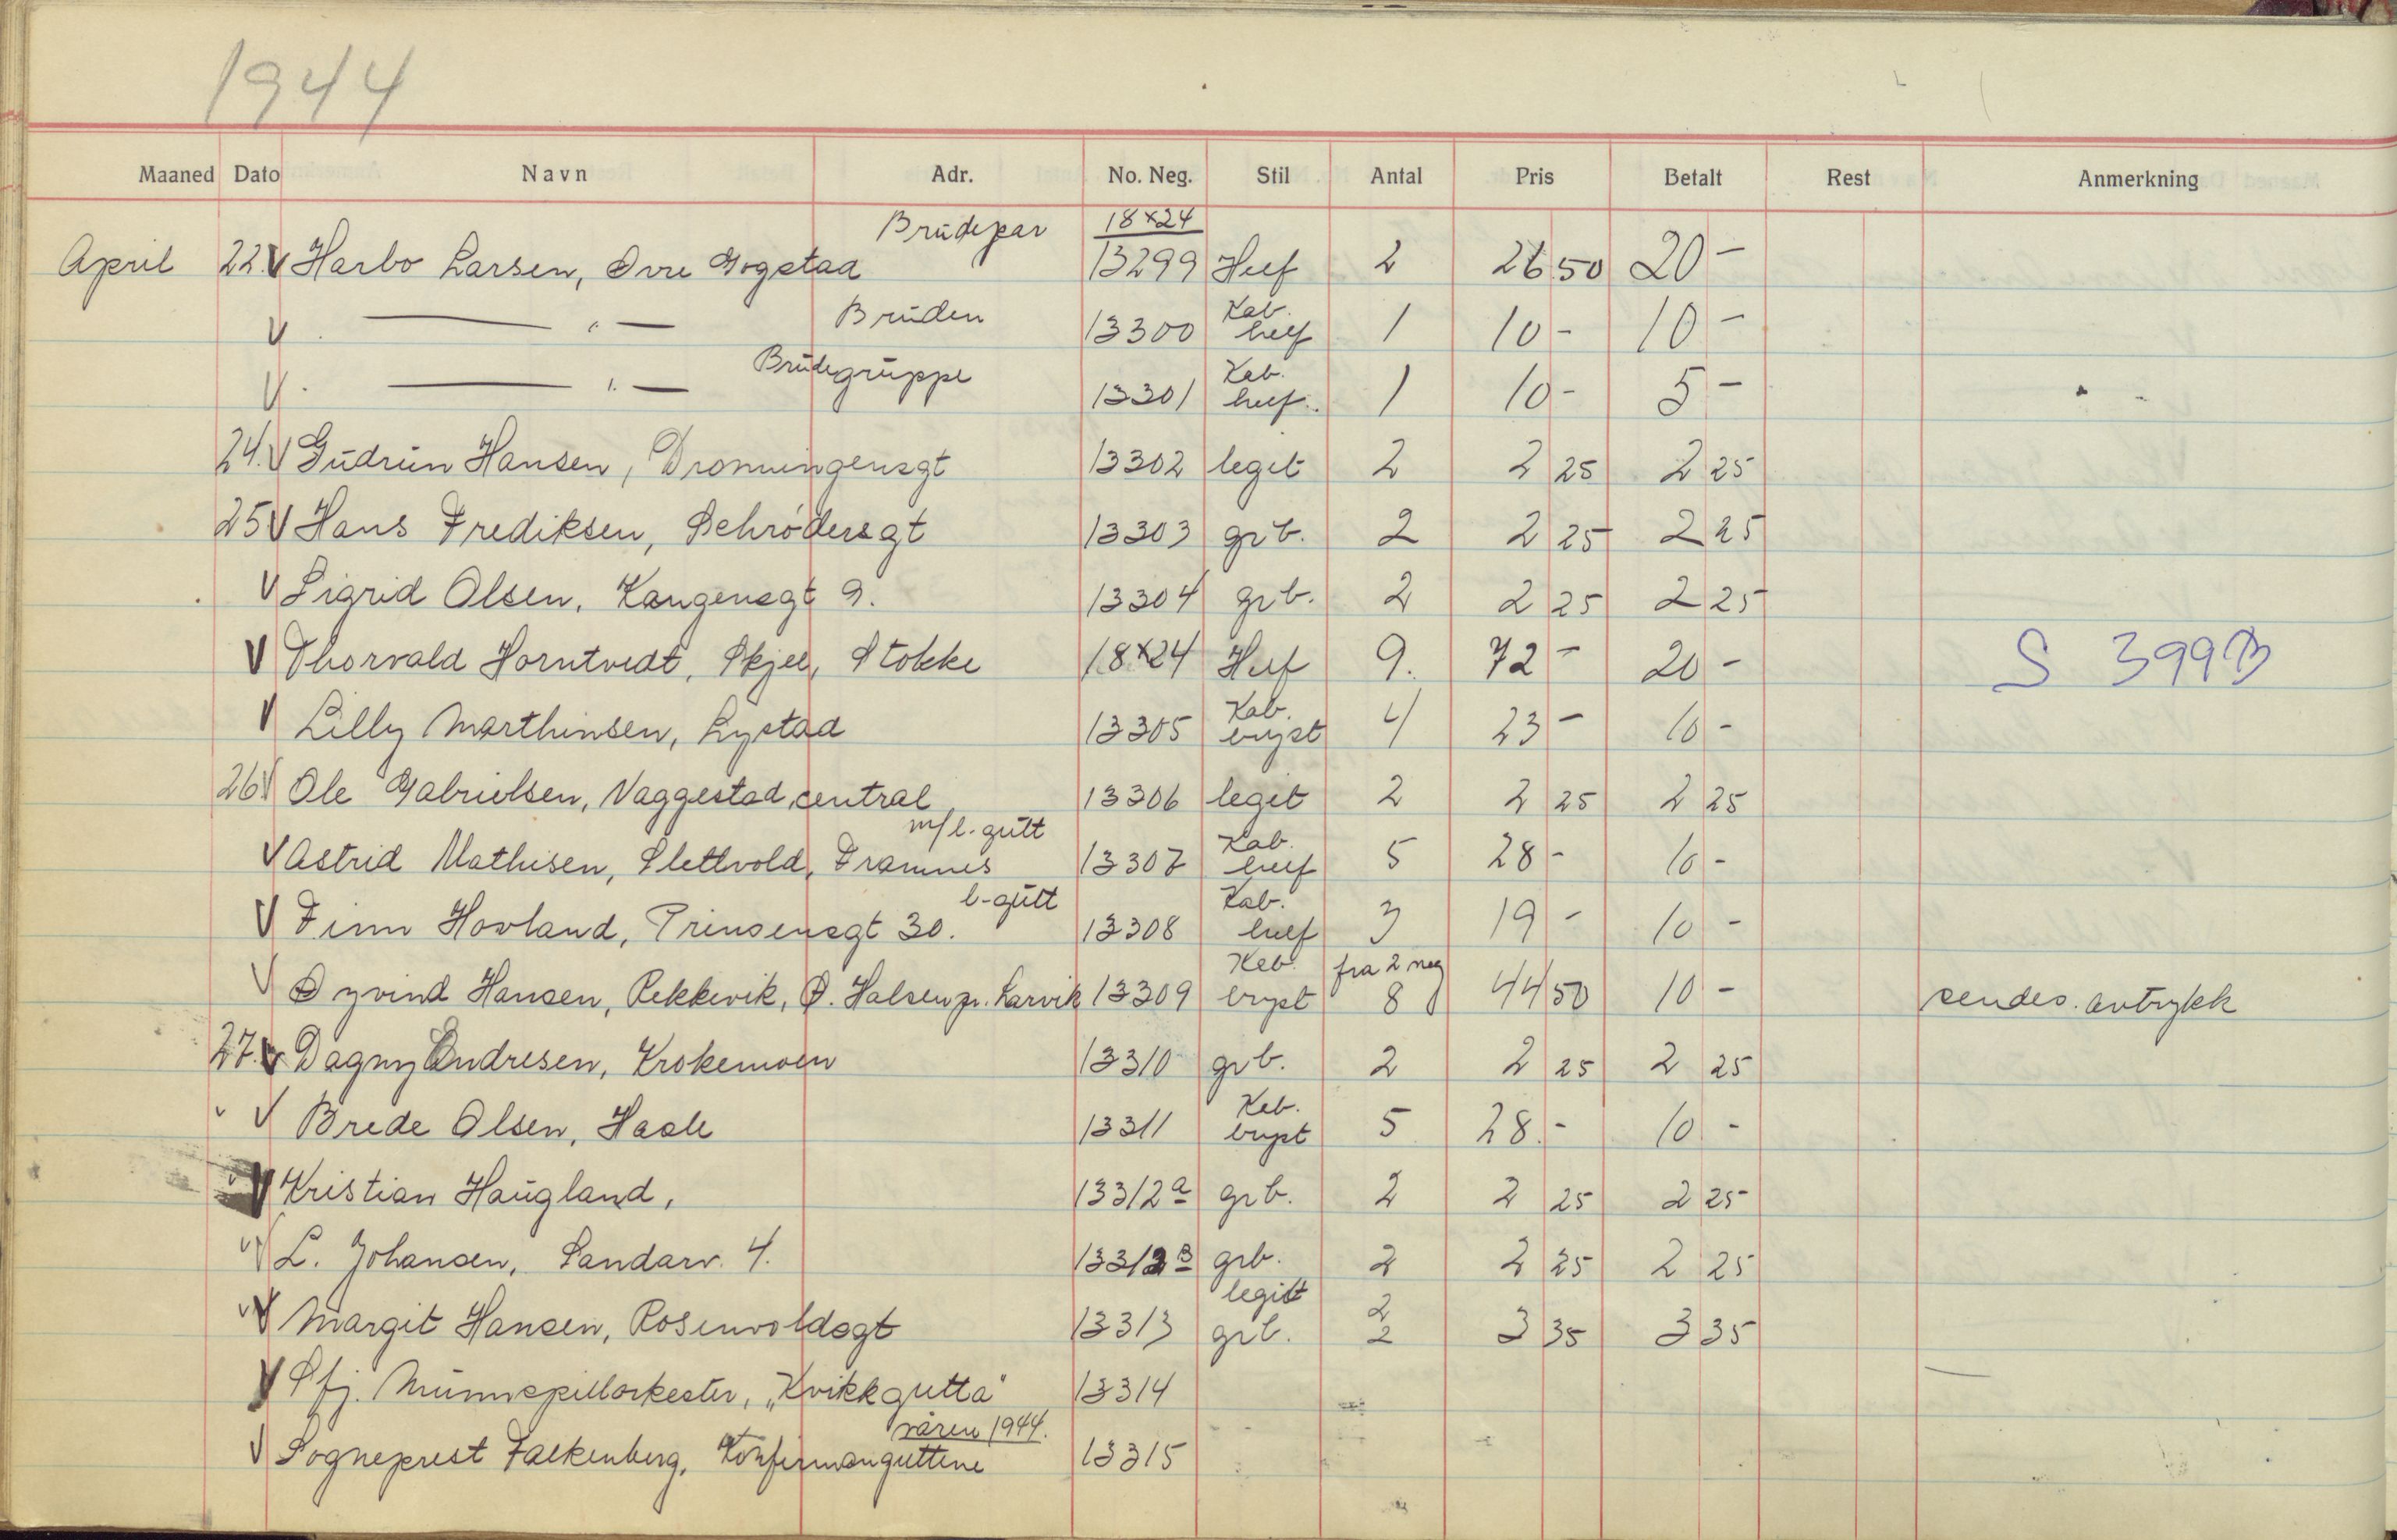 1944
Maaned Dato Navn Adr. No. Neg. Stil Antal Pris Betalt Rest Anmerkning
Brudepar 18x24
April 22. V Harbo Larsen, Øvre Gogstad 13299 Hlf 2 26 50 20 -
V — " — Bruden 13300 Kab. hlf 1 10 - 10 -
V — " — Brudegruppe 13301 Kab. hlf. 1 10 - 5 -
24. V Gudrun Hansen, Dronningensgt 13302 legit 2 2 25 2 25
25 V Hans Frediksen, Schrødersgt 13303 grb. 2 2 25 2 25
V Sigrid Olsen, Kongensgt 9. 13304 grb. 2 2 25 2 25
V Thorvald Horntvedt, Skjee, Stokke 18x24 Hlf 9. 72 - 20 - S 399B
V Lilly Marthinsen, Lystad 13305 Kab. bryst 4 23 - 10 -
26 V Ole Gabrielsen, Vaggestad central 13306 legit 2 2 25 2 25
m/l. gutt
V Astrid Mathisen, Slettvold, Framnes 13307 Kab. hlf 5 28 - 10 -
l-gutt
V Finn Hovland, Prinsensgt 30. 13308 Kab. hlf 3 19 - 10 -
V Øyvind Hansen, Rekkevik, Ø. Halsen pr. Larvik 13309 Kab. bryst fra 2 neg 8 44 50 10 - sendes. avtrykk
27. V Dagny Andresen, Krokemoen 13310 grb. 2 2 25 2 25
" V Brede Olsen, Hasle 13311 Kab. bryst 5 28. - 10 -
" V Kristian Haugland, 13312a grb. 2 2 25 2 25
" V L. Johansen, Sandarv. 4. 13312B grb. 2 2 25 2 25
legit 2
" V Margit Hansen, Rosenvoldsgt 13313 grb. 2 3 35 3 35
V Sfj. Munnspillorkester, „Kvikkgutta" 13314
våren 1944.
V Sogneprest Falkenberg, Konfirmanguttene 13315